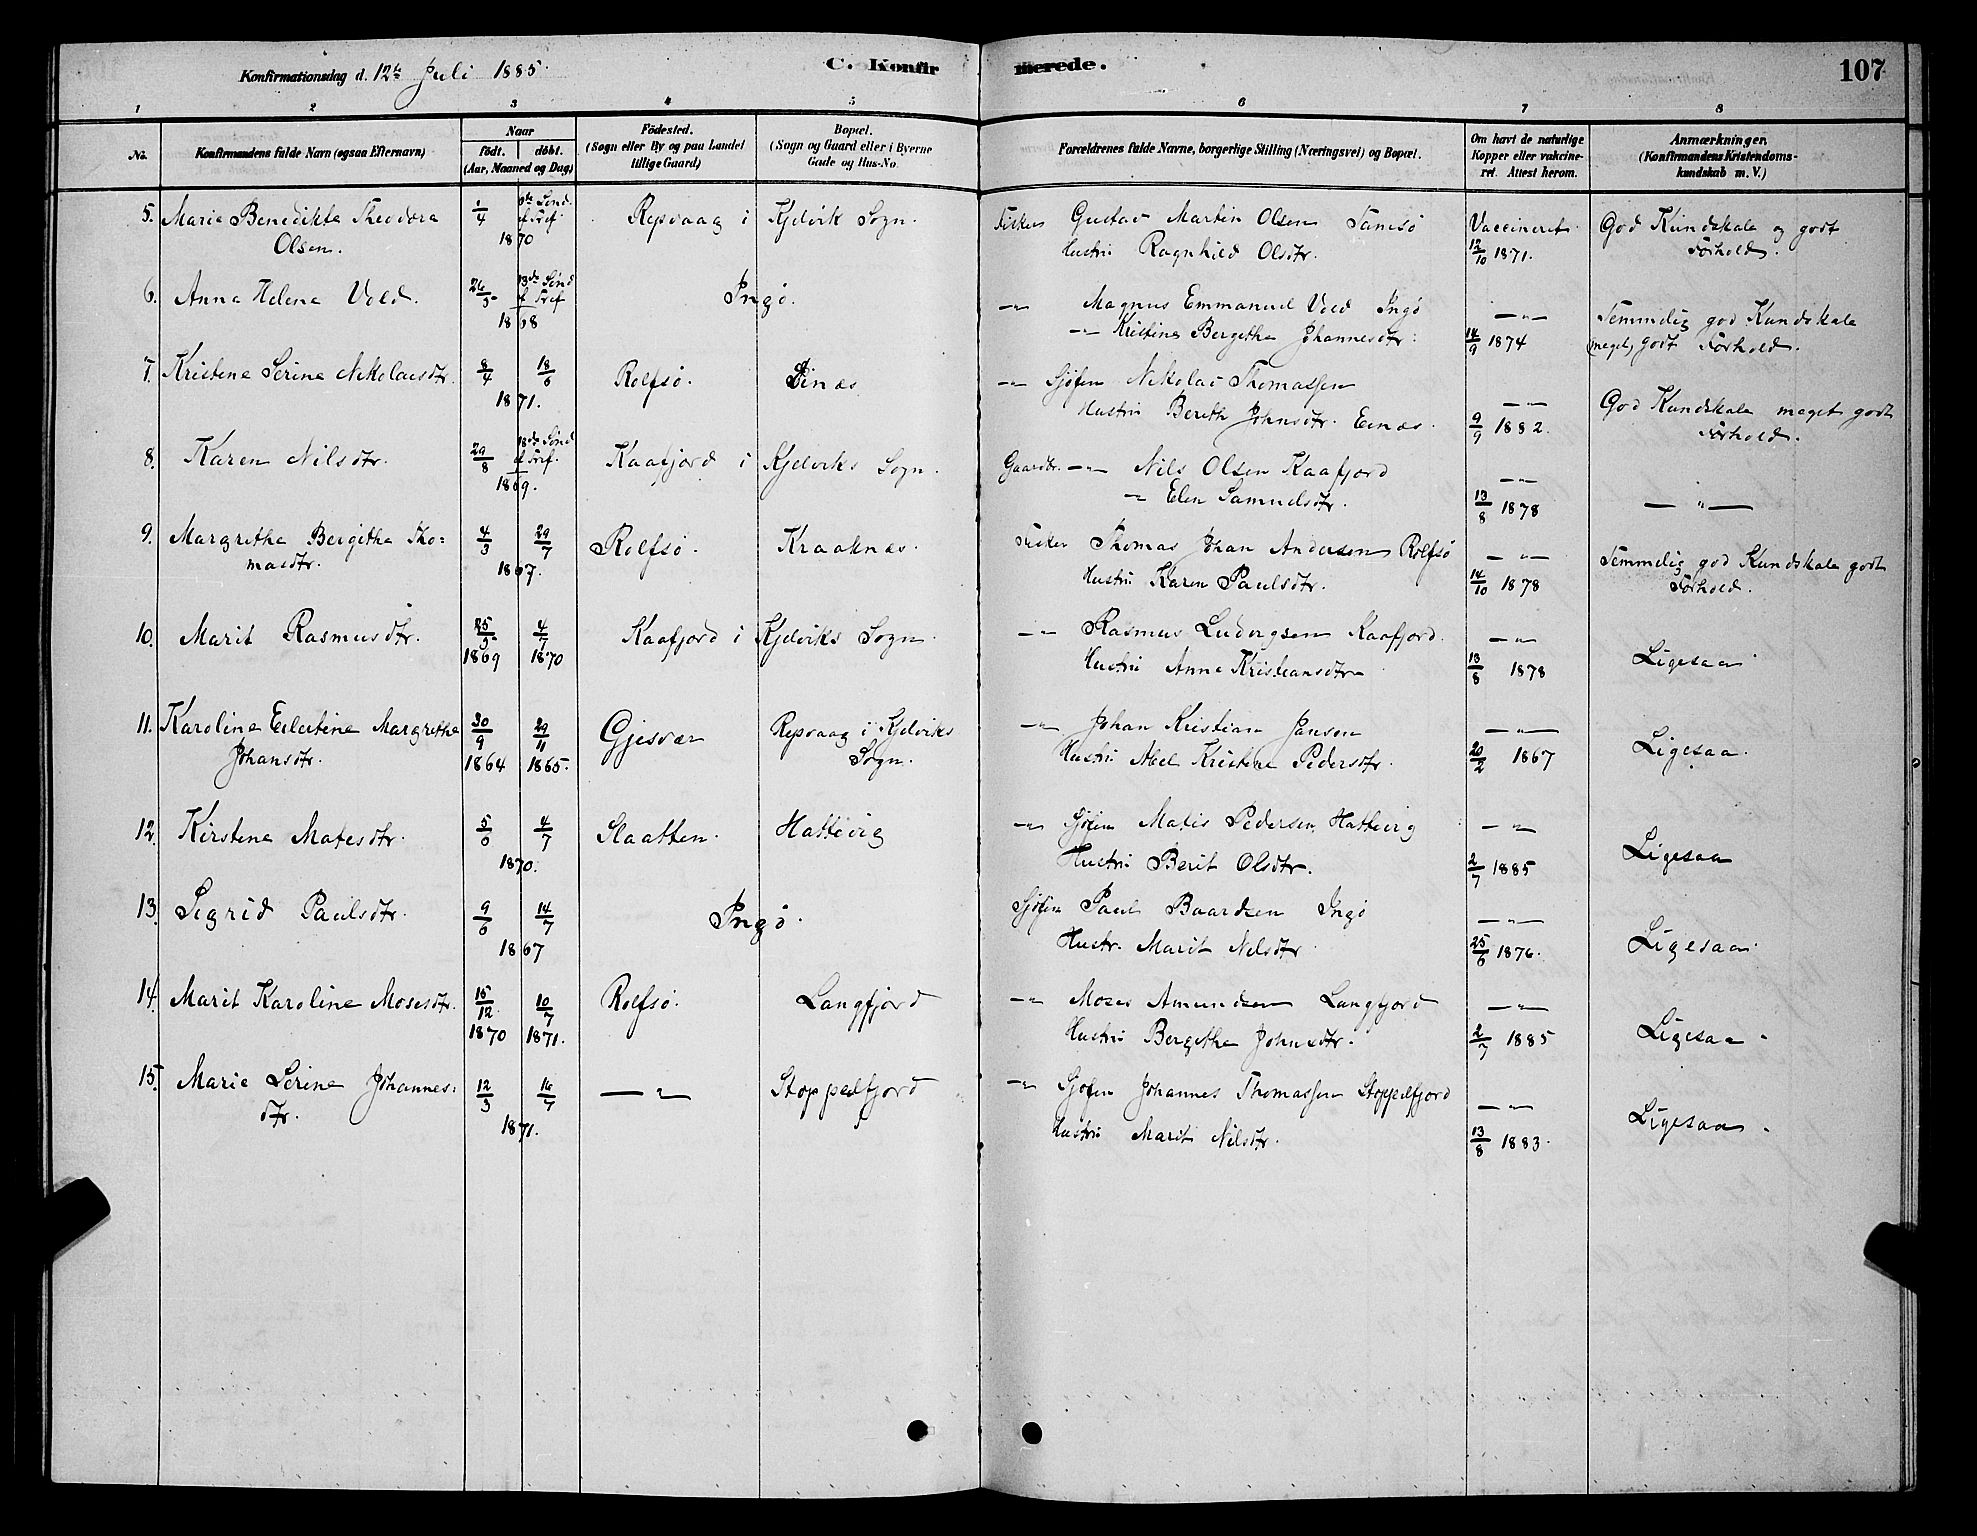 Konfirmationsdag d. 12te Juli 1885.
C. Konfirmerede.
107
1 2 3 4 5 6 7 8
No.
Konfirmandens fulde Navn (ogsaa Efternavn)
Naar
födt. döbt.
(Aar, Maaned og Dag)
Födested.
(Sogn eller By og paa Landet
tillige Gaard)
Bopæl.
(Sogn og Gaard eller i Byerne
Gade og Hus-No.
Forældrenes fulde Navne, borgerlige Stilling (Næringsvei) og Bopæl.
Om havt de naturlige
Kopper eller vakcine-
ret. Attest herom.
Anmærkninger.
(Konfirmandens Kristendoms-
kundskab m. V.)
5. Marie Benedikte Theodora 1/4 Sönd. Repvaag i Kjelvik Sogn. Fisker Gustav Martin Olsen Tamsö Vaccineret God Kundskab og godt
Olsen. ef Tref. 1870 Hustru Ragnhild Olsdtr. 12/10 1871. Forhold.
6. Anna Helena Vold. 26/5 13de Sönd Ingö. -"- Magnus Emmanuel Vold Ingö -"- Temmelig god Kundskab
ef Tref 1868 -"- Kristine Bergitha Johannesdtr: 14/9 1874 meget godt Forhold.
7. Kristene Serine Nikolaisdtr. 8/4 18/6 Rolfsö. Einæs -"- Sjöfin Nikolai Thomassen -"- God Kundskab meget godt
1871. Hustru Bereth Johnsdtr. Einæs. 9/9 1882. Forhold.
8. Karen Nilsdtr. 29/8 18de Sönd Kaafjord i Kjelviks Sogn. Gaardbr. -"- Nils Olsen Kaafjord -"-
ef Tref. 1869. -"- Elen Samuelsdtr. 13/8 1878 -"-
9. Margrethe Bergitha Tho= 4/3 29/7 Rolfsö. Kraaknæs. Fisker Thomas Johan Andersen Rolfsö -"- Temmelig god Kundskab godt
masdtr. 1867. Hustru Karen Paulsdtr. 14/10 1878 Forhold.
10. Marit Rasmusdtr. 25/5 4/7 Kaafjord i Kjelviks Sogn. -"- Rasmus Ludvigsen Kaafjord. -"-
1869 1870 Hustru Anna Kristiansdtr 13/8 1878 Ligesaa
11. Karoline Eilertine Margrethe 30/9 29/11 Gjesvær Repvaag i Kjelviks -"- Johan Kristian Jansen -"-
Johansdtr. 1864 1865. Sogn. Hustru Abel Kristine Pedersdtr. 20/2 1867 Ligesaa.
12. Kirstene Matisdtr. 5/6 4/7 Slaatten. Hattevig -"- Sjöfin Matis Pedersen, Hattevig -"-
1870. Hustru Berit Olsdtr. 2/7 1885 Ligesaa
13. Sigrid Paulsdtr. 9/6 14/7 Ingö. Sjöfin Paul Baardsen Ingö -"-
1867 Hustr. Marit Nilsdtr. 25/6 1876. Ligesaa.
14. Marit Karoline Mosesdtr. 15/12 10/7 Rolfsö. Langfjord -"- Moses Amundsen Langfjord -"-
1870 1871. Hustru Bergitha Johnsdtr. 2/7 1885 Ligesaa.
15. Marie Serine Johannes= 12/3 16/7 -"- Stoppelfjord -"- Sjöfin Johannes Thomassen Stoppelfjord -"-
dtr. 1871. Hustru Marit Nilsdtr. 13/8 1883. Ligesaa.